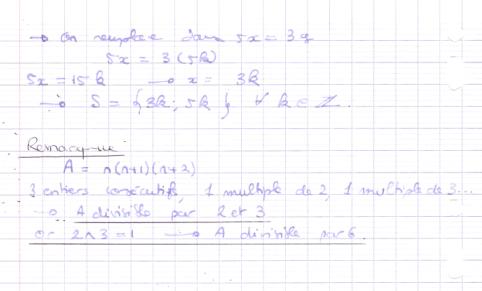 → On remplace dans 5x = 3y
5x = 3(5k)
5x = 15k → x = 3k
→ S = {3k; 5k} ∀ k ∈ Z.
Remarque
A = n(n+1)(n+2)
3 entiers consécutifs, 1 multiple de 2, 1 multiple de 3...
→ A divisible par 2 et 3
or 2∧3=1 → A divisible par 6.